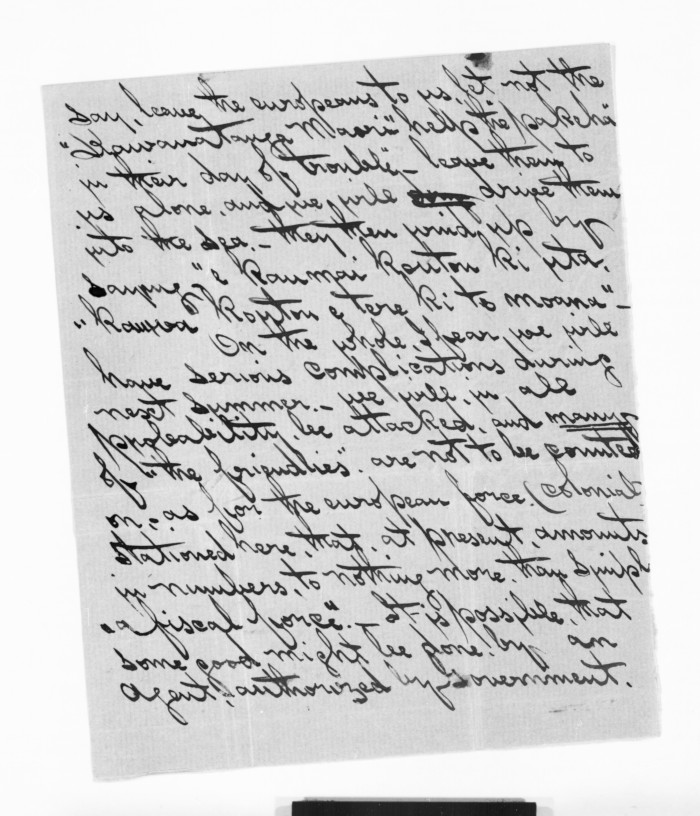 say, leave the europeans to us, let not the
"Kawanatanga Maori" help the "pakeha"
in their day of "trouble" - leave them to
us alone, and we will drive them
into the sea. - they then wind up by
saying "e kaumai koutou ki uta,
"kawea koutou e tere ki te moana" -
On the whole, I fear, we will
have serious complications during
next summer. - we will, in all
probability, be attacked, and many
of "the friendlies" are not to be counted
on, - as for the european force (Colonial)
stationed here, that, at present amounts
in numbers, to nothing more, than simply
"a fiscal force". - It is possible, that
some good might be done, by an
Agent, authorized by Government.